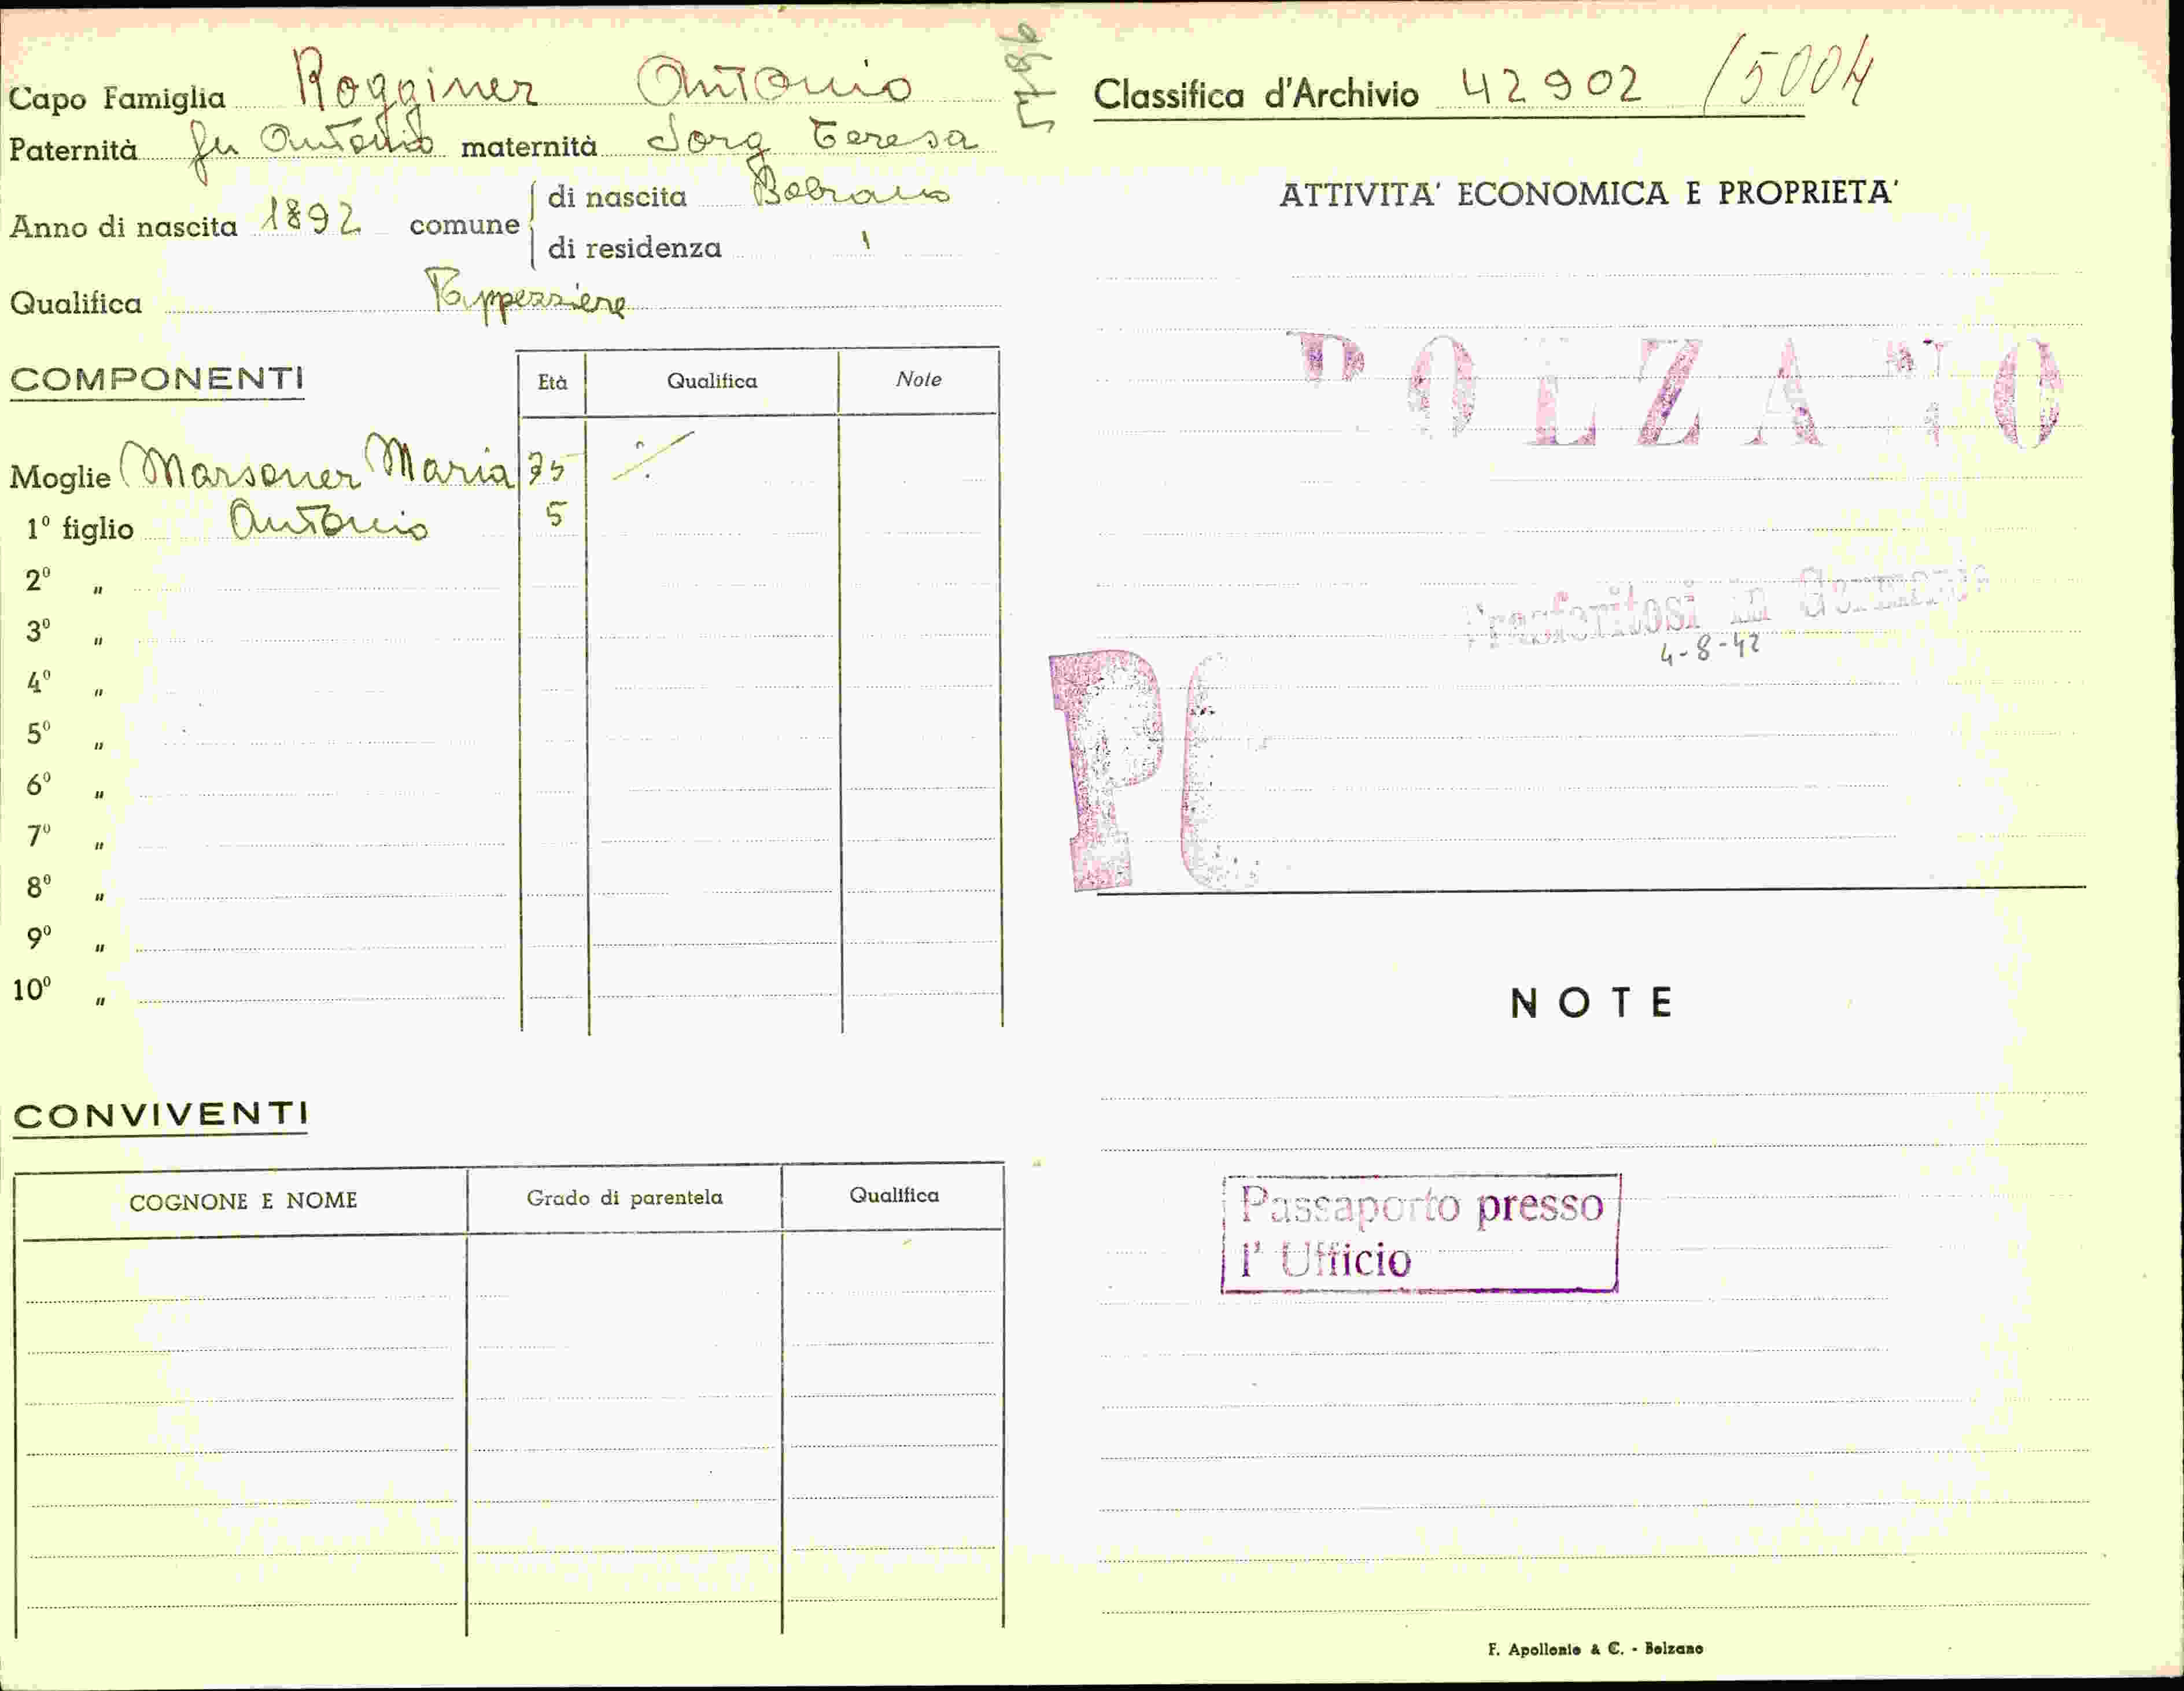 Capo Famiglia Rogginer Antonio
Paternità fu Antonio maternità Jorg Teresa
Anno di nascita 1892 comune
di nascita Bolzano
di residenza "
Qualifica Tappezziere
COMPONENTI
Età Qualifica Note
Moglie Marsoner Maria 35 ./.
1º figlio Antonio 5
2º "
3º "
4º "
5º "
6º "
7º "
8º "
9º "
10º "
CONVIVENTI
COGNONE E NOME Grado di parentela Qualifica
Classifica d'Archivio 42902 /5004
ATTIVITA' ECONOMICA E PROPRIETA'
BOLZANO
Trasferitosi in Germania
4-8-42
NOTE
Passaporto presso
l' Ufficio
F. Apollonio & C. - Bolzano